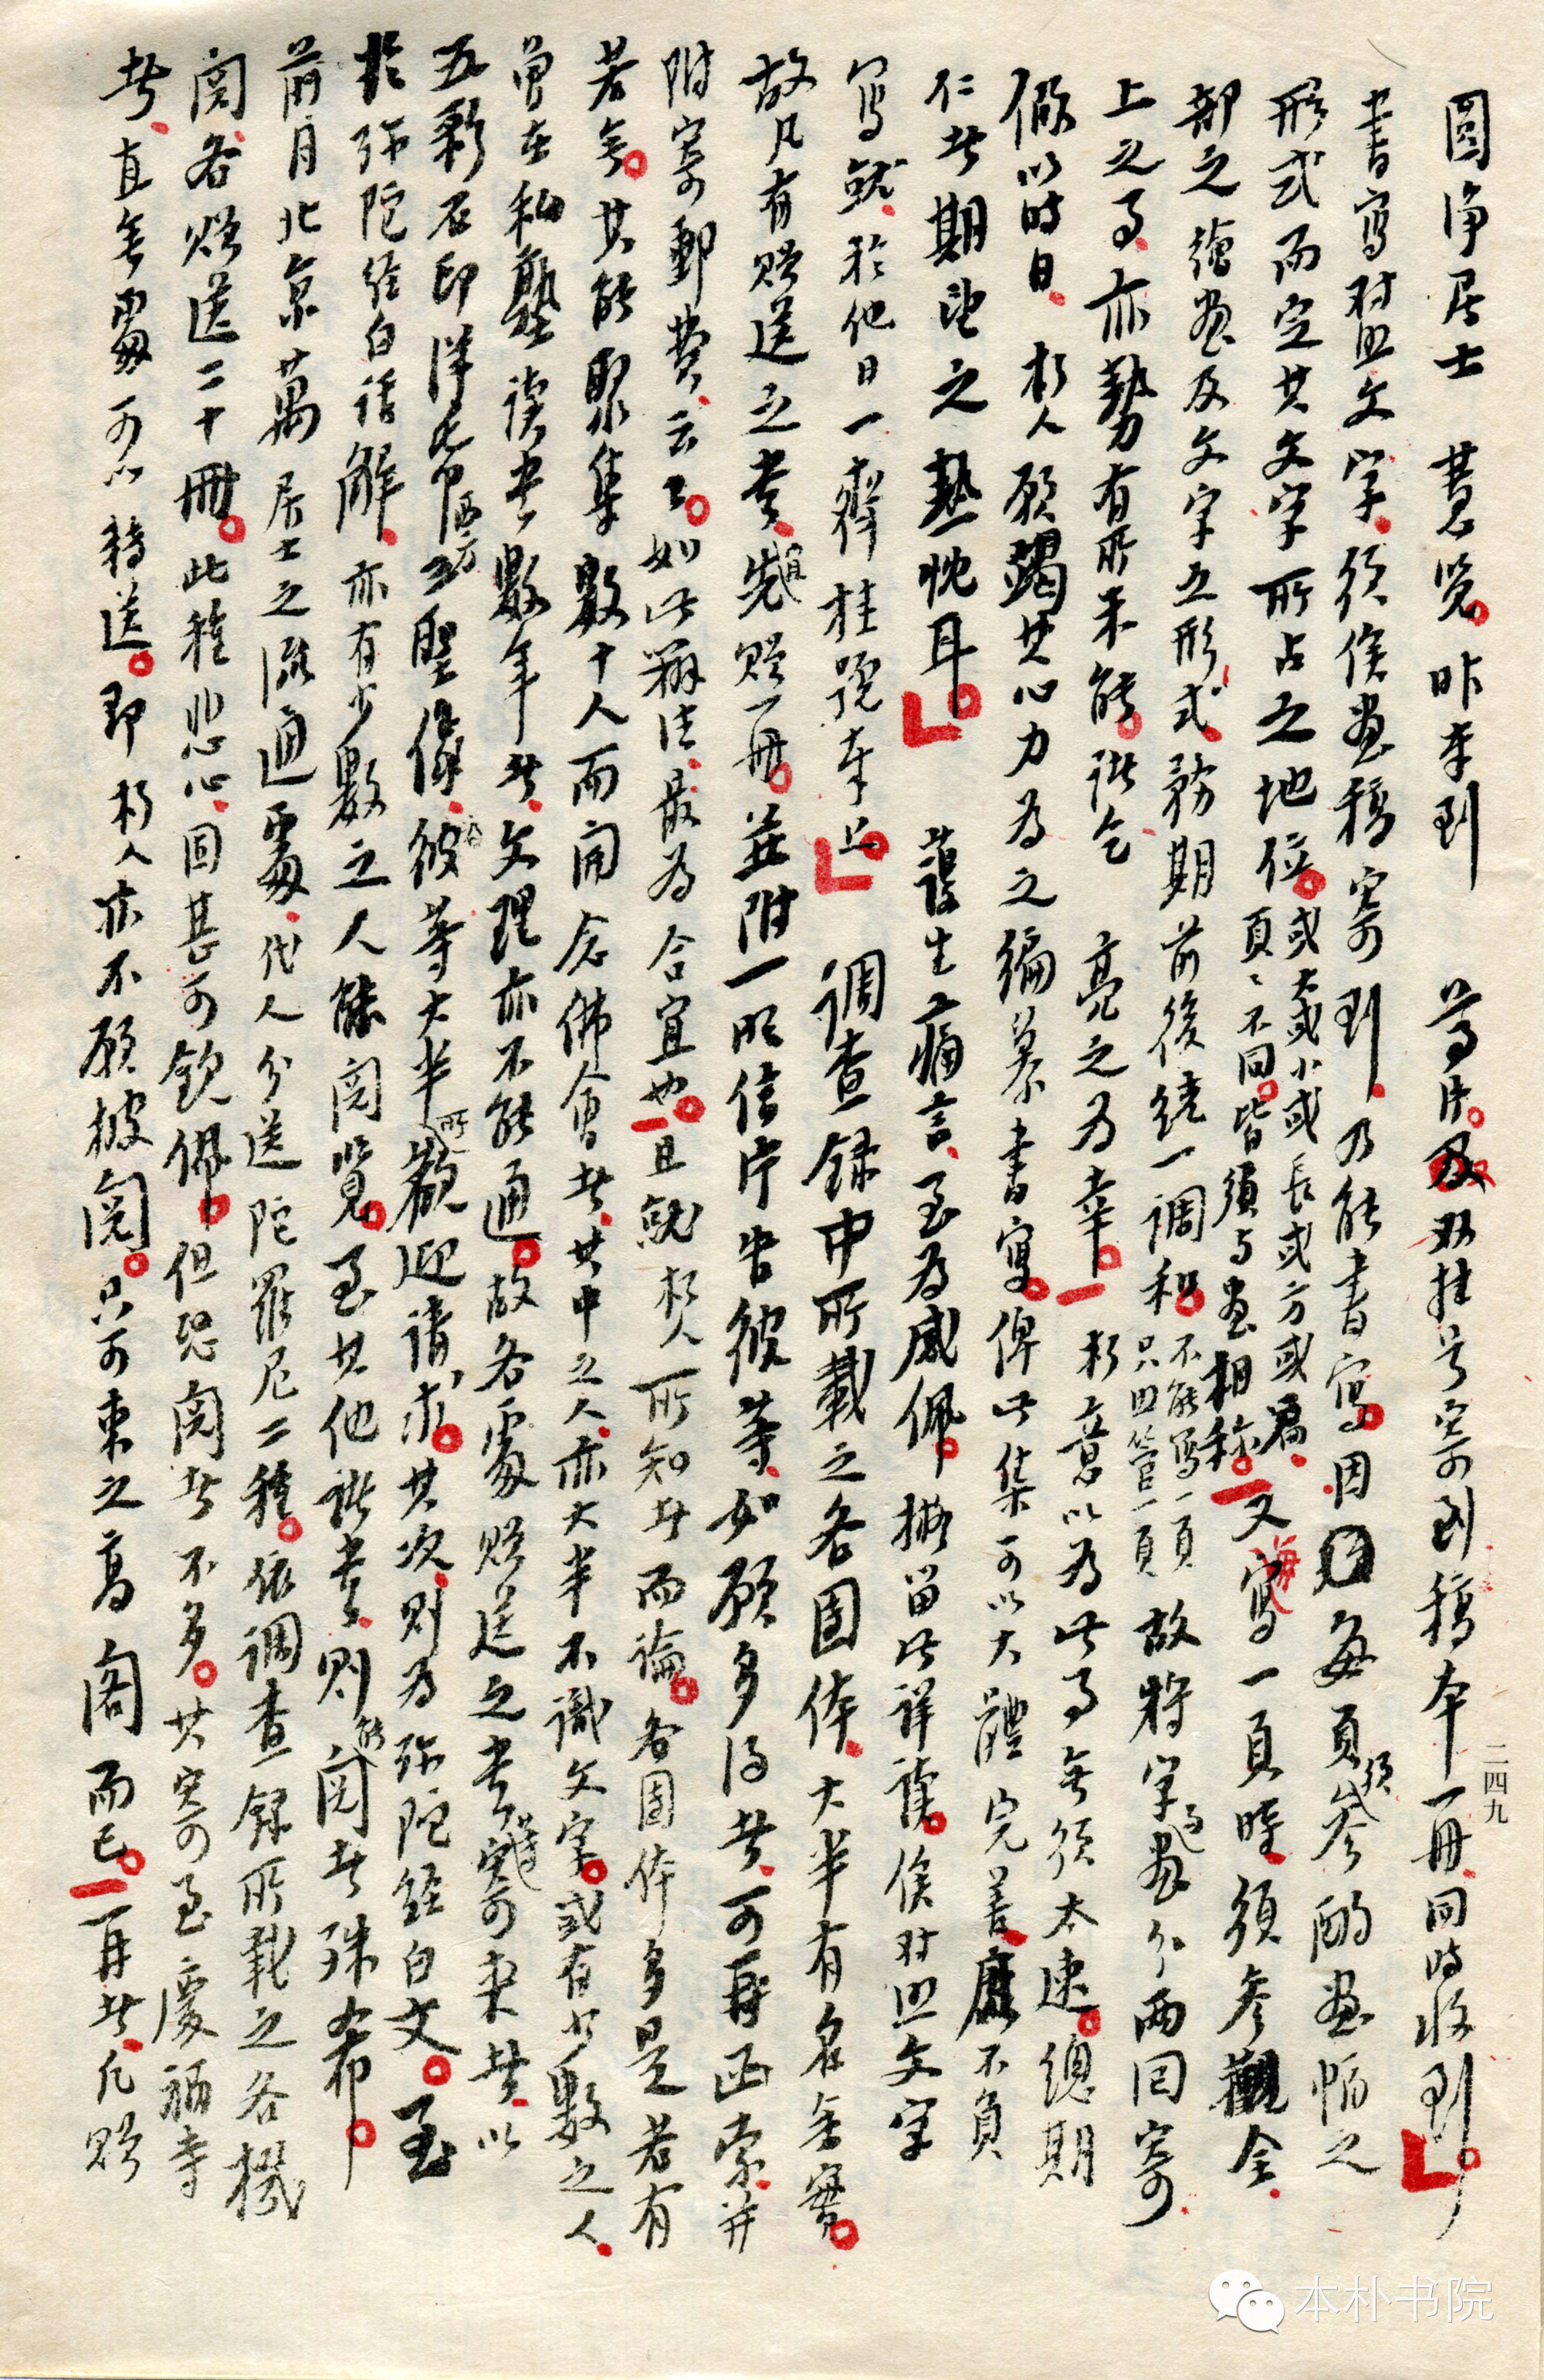 圆净居士　慧览。昨奉到　尊片。及双挂号寄到稿本一册、同时收到。
书写对照文字、须俟画稿寄到、乃能书写。因每页须参酌画幅之
形式而定其文字所占之地位。或大或小或长或方或扁、页々不同。皆须与画相称。又写一页时、须参观全
部之绘画及文字之形式、务期前后统一调和。不能写一页只照管一页故将字与画分两回寄
上之事、亦势有所未能。诸乞　亮之为幸。朽意以为此事无须太速。总期
假以时日、朽人愿竭其心力为之编纂书写。俾此集可以大体完善、庶不负
仁者期望之热忱耳。　护生痛言、至为感佩。拟留此详读。俟对照文字
写就、于他日一齐挂号奉上。　调查录中所载之各团体、大半有名无实。
故凡有赠送之书、宜先赠一册。并附一明信片告彼等、如愿多得者、可再函索、并
附寄邮费、云云。如此办法、最为合宜也。且就朽人所知者而论。各团体多是若有
若无。其能聚集数十人而开念佛会者、其中之人、亦大半不识文字。或有少数之人、
曾在私塾读书数年者、文理亦不能通。故各处赠送之书寄来者、以
五彩石印洋纸西方三圣像、为彼等大半所欢迎请求。其次、则为弥陀经白文。至
于弥陀经白话解、亦有少数之人能阅览。至其他诸书、则能阅者殊希。
前月北京万居士之流通处、代人分送陀罗尼二种。依调查录所载之各机
关、各赠送二十册。此种悲心、固甚可钦佩。但恐阅者不多。其寄至庆福寺
者、直无处可以转送。即朽人亦不愿披阅。只可束之高阁而已。再者、凡赠
二四九
本朴书院